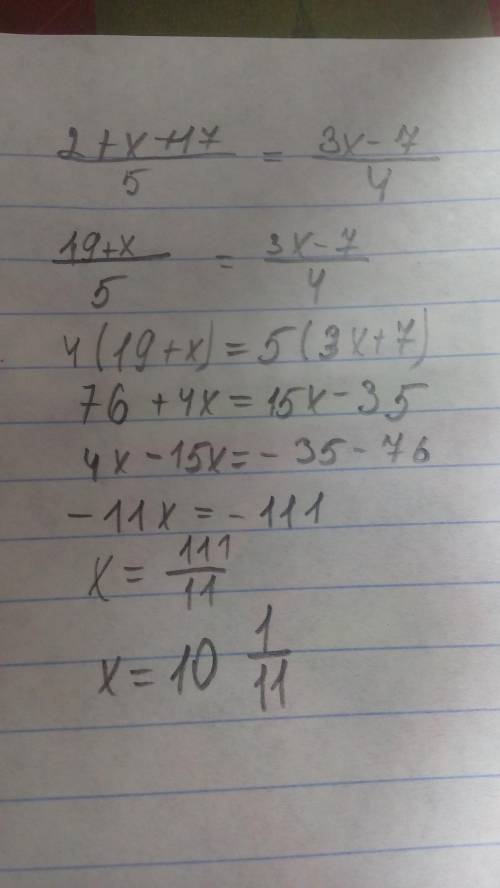 2+x+17/5 = 3x-7/4
19+x/5 = 3x-7/4
4(19+x)=5(3x+7)
76+4x=15x-35
4x-15x=-35-76
-11x=-111
x=111/11
x=10 1/11